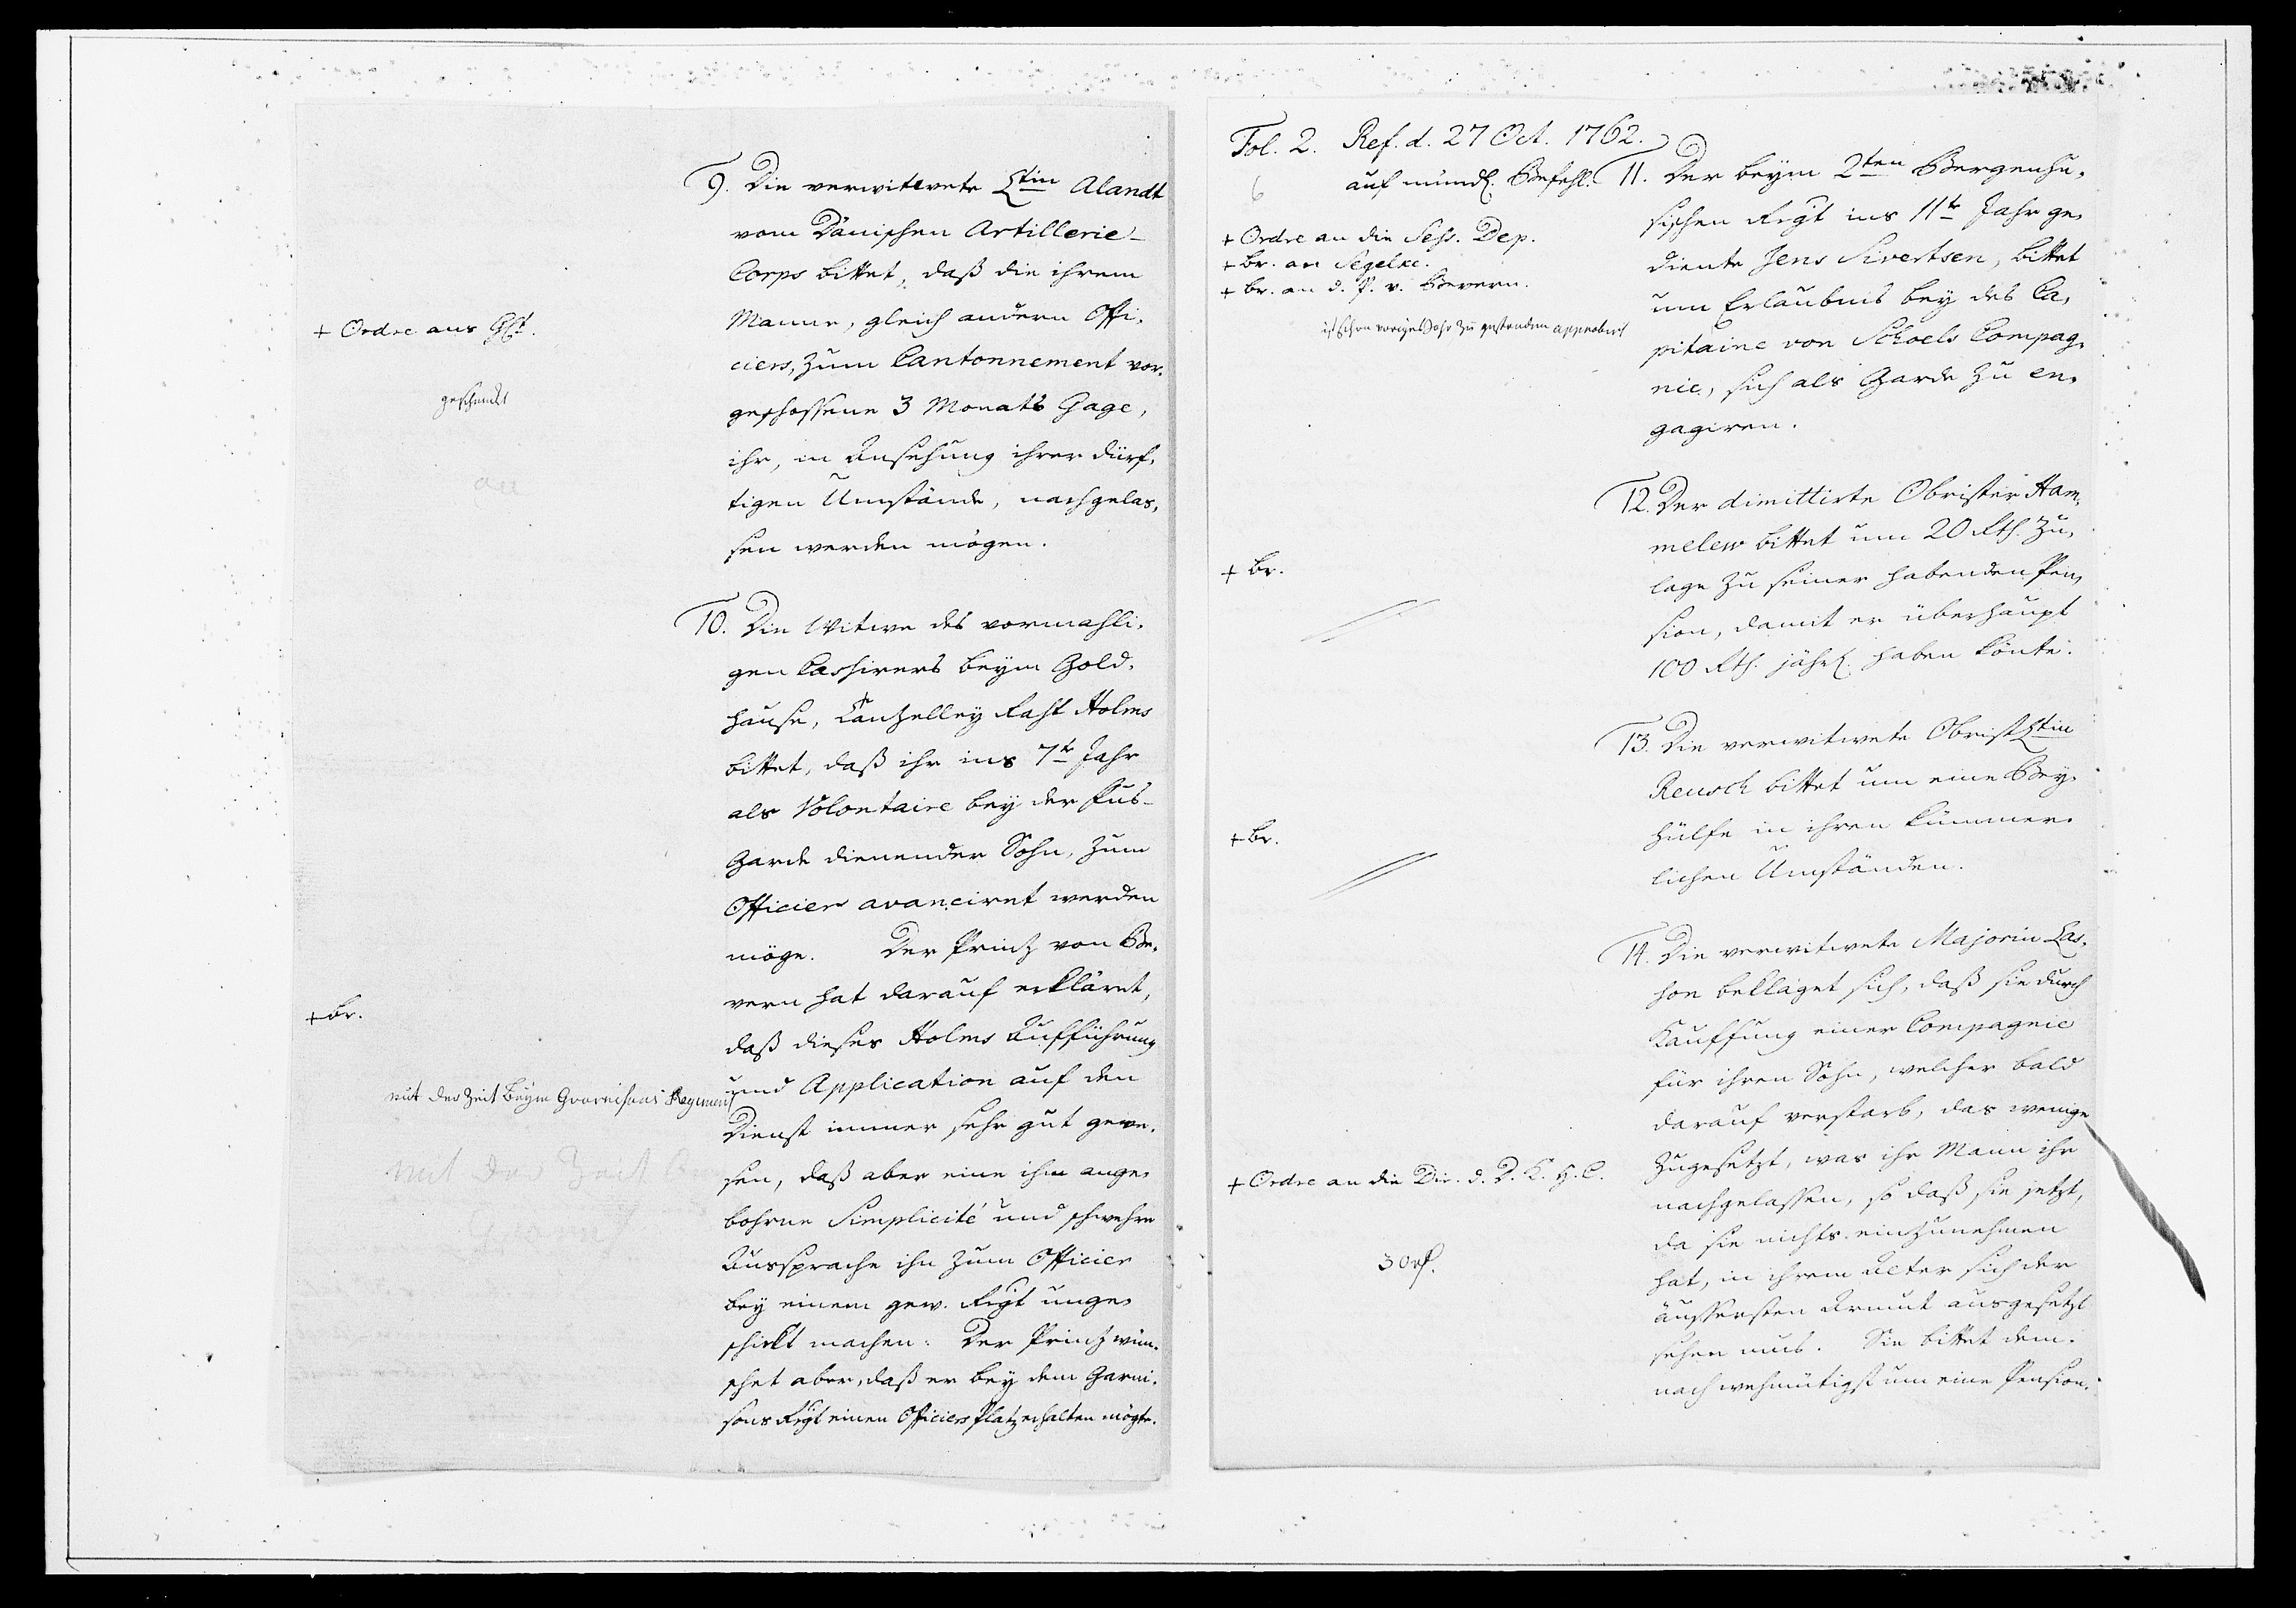 9. Die verwittwete Ltin Alandt
vom Dänischen Artillerie-
Corps bittet, daß die ihrem
Manne, gleich andern Offi-
ciers, zum Cantonnement vor-
geschossene 3 Monats Gage,
ihr, in Ansehung ihrer dürf-
tigen Umstände, nachgelas-
sen werden mögen.
+ Ordre ans
geschenckt
an
10. Die Witwe des vormahli-
gen Cassirers beym Gold-
hause, Cantzelley Raht Holms
bittet, daß ihr ins 7te Jahr
als Volontaire bey der Fus-
Garde dienender Sohn, zum
Officier avanciret werden
möge. Der Printz von Be-
vern hat darauf erkläret,
daß dieses Holms Aufführung
und Application auf den
Dienst immer sehr gut gewe-
sen, daß aber eine ihm ange-
bohrne Simplicité und schwehre
Aussprache ihn zum Officier
bey einem gew. Regt unge-
schickt machen. Der Printz wün-
schet aber, daß er bey dem Garni-
sons Regt einen Officiers Platz erhalten mögte.
+ br.
mit der Zeit beym Guarnisons Regiment
mit der Zeit
Fol. 2. Ref. d. 27 Oct. 1762.
6
auf mündl. Befehl.
+ Ordre an die Sess. Dep.
+ br. an Segelke.
+ br. an d. P. v. Bevern.
ist schon voriges Jahr zu gestanden approbirt
11. Der beym 2ten Bergenhu-
sischen Regt ins 11te Jahr ge-
diente Jens Sivertsen, bittet
um Erlaubnis bey des Ca-
pitaine von Schoels Compag-
nie, sich als Garde zu en-
gagiren.
12. Der dimittirte Obrister Ham-
melew bittet um 20 Rth. Zu-
lage zu seiner habenden Pen-
sion, damit er überhaupt
100 Rth. jährl. haben könte.
+ br.
13. Die verwitwete ObristLtin
Reusch bittet um eine Bey-
hülfe in ihren kümmer-
lichen Umständen.
+ br.
14. Die verwitwete Majorin Las-
son beklaget sich, daß sie durch
Kauffung einer Compagnie
für ihren Sohn, welcher bald
darauf verstarb, das wenige
zugesetzt, was ihr Mann ihr
nachgelassen, so daß sie jetzt,
da sie nichts einzunehmen
hat, in ihrem Alter sich der
äussersten Armut ausgesetzt
sehen mus. Sie bittet dem-
nach wehmütigst um eine Pension.
+ Ordre an die Dir. d. D. K. H. C.
30 rf.